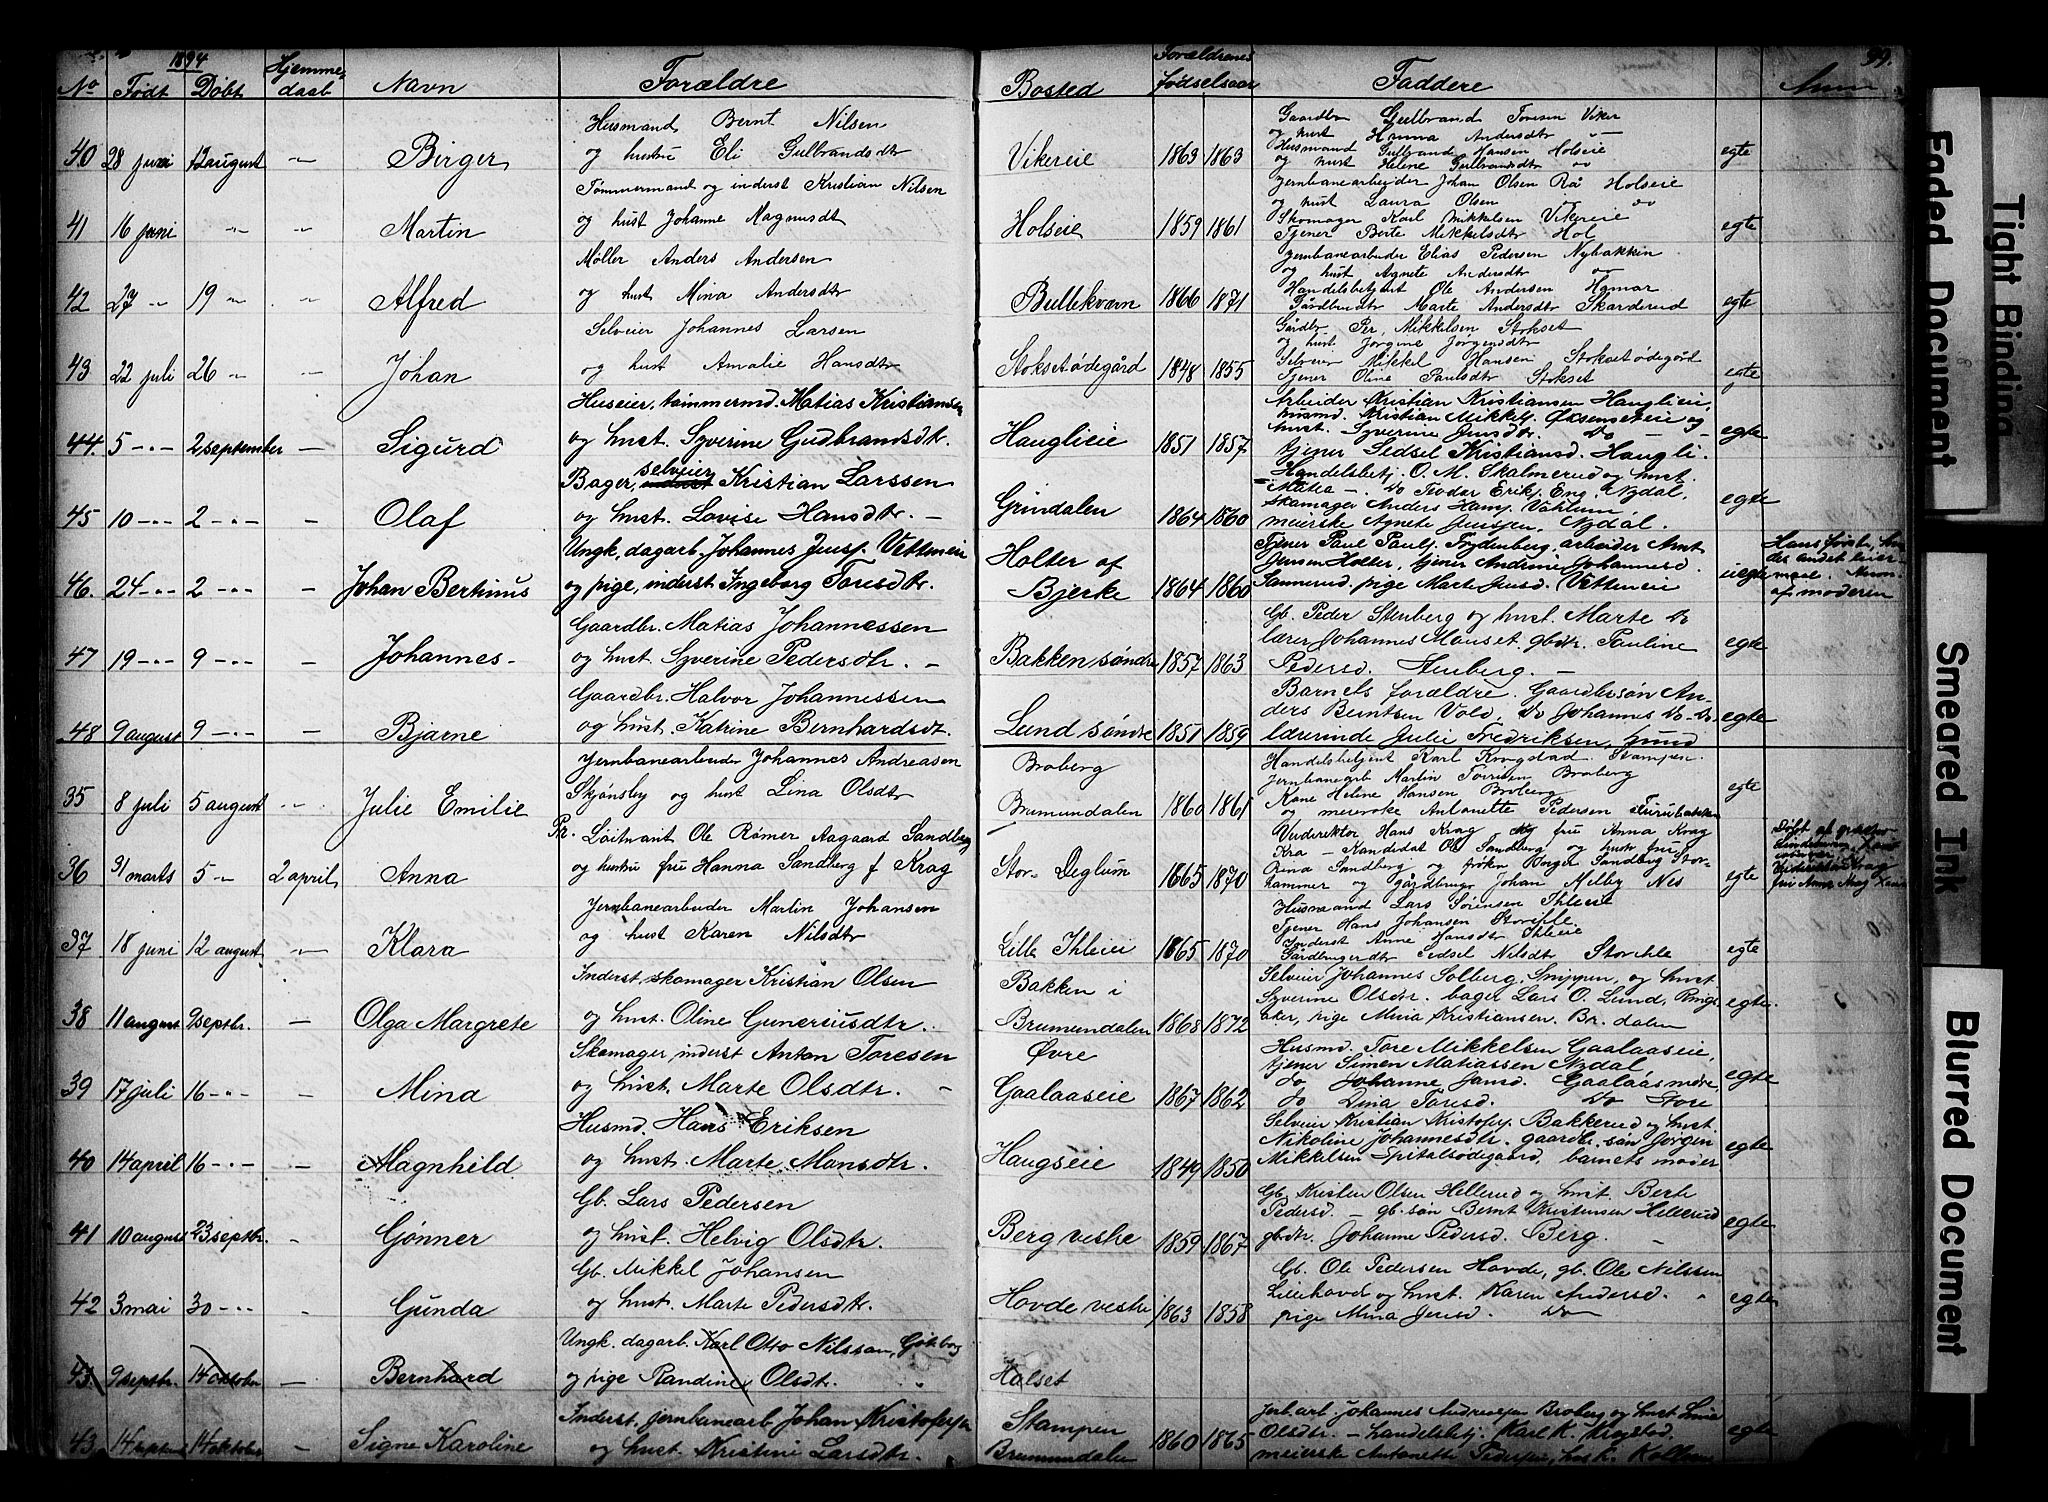 1894
99.
No Født Døbt Hjemmedaab Navn Forældre Bosted Forældrenes fødselsaar Faddere Anm
40 28 juni 12 august -"- Birger Husmand Bernt Nilsen
og hustru Eli Gulbrandsdtr Vikereie 1863 1863 egte
Gaardbr Gulbrand Toresen Viker
og hust Hanna Andersdtr
Husmand Gulbrand Hansen Holseie
og hust Helene Gulbrandsdtr do
41 16 juni -"- -"- Martin Tømmermand og inderst Kristian Nilsen
og hust Johanne Magnusdtr Holseie 1859 1861 egte
Jernbanearbeider Johan Olsen Rå Holseie
og hust Laura Olsen do
Skomager Karl Mikkelsen Vikereie
Tjener Berte Mikkelsdtr Hol
42 27 -"- 19 -"- -"- Alfred Møller Anders Andersen
og hust Mina Andersdtr Bullekværn 1866 1871 egte
Jernbanearbeider Elias Pedersen Nybakken
og hust Agnete Andersdtr do
Handelsbetjent Ole Andersen Hamar
Gårdbrdtr Marte Andersdtr Skarderud
43 22 juli 26 -"- -"- Johan Selveier Johannes Larsen
og hust Amalie Hansdtr Stoksetødegård 1848 1855 egte
Gårdbr Per Mikkelsen Stokset
og hust Jørgine Jørgensdtr
Selveier Mikkel Hansen Stoksetødegård
Tjener Oline Paulsdtr Stokset
44. 5 -"- 2 september - Sigurd Huseier, tømmermd. Matias Kristiansen
og hust. Syverine Gudbrandsdtr. Hauglieie 1851 1857 egte
Arbeider Kristian Kristiansen Hauglieie,
husmd. Kristian Mikkels. Oxsenseteie og
hust. Syverine Jensdtr. Do
tjener Sedsel Kristiansd. Haugli.
45 10 -"- 2 -"- - Olaf Bager, selveier Kristian Larssen
og hust. Lovise Hansdtr. - Grindalen 1864 1860 egte
Handelsbetj. O. M. Skalmerud og hust.
Matea -. Do Teodor Eriks. Eng, Nydal,
skomager Anders Hans. Vahlum,
meierske Agnete Jensen, Nydal.
46. 24 -"- 2 -"- - Johan Bertinus Ungk. dagarb. Johannes Jens. Vettmeie
og pige, inderst Ingeborg Toresdtr. Holter af
Bjerke 1864 1860 uegte
Tjener Paul Pauls. Frydenberg, arbeider Arnt
Jensen Holter, tjener Andrine Johannesd.
Sannerud, pige Marte Jensd. Vettmeie
Hans første, hen-
des andet leier-
maal.
af moderen
47 19 -"- 9 -"- - Johannes - Gaardbr. Matias Johannessen
og hust. Syverine Pedersdtr. - Bakken søndre 1857 1863 egte
Gb. Peder Stenberg og hust. Marte Do
lærer Johannes Mauset. gbdtr. Pauline
Pedersd. Stenberg. -
48 9 august 9 -"- - Bjarne Gaardbr. Halvor Johannessen
og hust. Katrine Bernhardsdt. Lund søndre 1851 1859 egte
Barnets forældre. Gaardbr.søn An-
ders Berntsen Vold, Do Johannes Do - Do.
lærerinde Julie Fredriksen, Lund
35 8 juli 5 august -"- Julie Emilie Jernbanearbeider Johannes Andreasen
Skjønsby og hust Lina Olsdtr Broberg
Brumundalen 1860 1861 egte
Handelsbetjent Karl Krogstad Stampen
Jernbanearb Martin Toresen Broberg
Kone Helene Hansen Broberg
og meierske Antonette Pedersen Furubakken
36 31 marts 5 -"- 2 april Anna Pr. Løitnant Ole Rømer Aagaard Sandberg
og hustru frue Hanna Sandberg f Krag Stor- Deglum 1865 1870 egte
Veidirektør Hans Krag og frue Anna Krag
Kra - Kandidat Ole Sandberg og hust frue
Rina Sandberg og frøken Borger Sandberg Stor-
hammer og gårdbruger Johan Melby Nes
Døbt af
frue Anna Krag
37 18 juni 12 august -"- Klara Jernbanearbeider Martin Johansen
og hust Karen Nilsdtr Lille Ihleiei 1865 1870 egte
Husmand Lars Sørensen Ihleeie
Tjener Hans Johansen Storihle
Inderst Anne Hansdtr Ihleie
Gårdbrugerdtr Sedsel Nilsdtr Storihle
38 11 august 9 septbr. - Olga Margrete Inderst, skomager Kristian Olsen
og hust. Oline Guneriusdtr. Bakken i
Brumundalen 1868 1872 egte.
Selveier Johannes Solberg, Snippen, og hust.
Syverine Olsdtr. bager Lars O. Lund, Rings-
aker, pige Mina Kristiansen. Br. dalen
39 17 juli 16 -"- - Mina Skomager, inderst Anton Toresen
og hust. Marte Olsdtr. Øvre
Gaalaaseie 1867 1862 egte
Husmd. Tore Mikkelsen Gaalaaseie,
tjener Simen Matiassen Nydal
do Johanne Jansd. Gaalaasmøre
do Dina Toresd. Do Store
40 14 april 16 -"- - Magnhild Husmd. Hans Eriksen
og hust. Marte Monsdtr. Haugseie 1849 1850 egte
Selveier Kristian Kristofers. Bakkerud og hust.
Nikoline Johannesdtr. gaardb. søn Jørgen
Mikkelsen Spitalsødegaard, barnets moder
41 10 august 23 septbr. - Gønner Gb. Lars Pedersen
og hust. Helvig Olsdtr. Berg vestre 1859 1867 egte
Gb. Kristen Olsen Hellerud og hust. Berte
Pedersd. - gb. søn Bernt Kristensen Hellerud
gbdtr. Johanne Pedersd. Berg.
42 3 mai 30 -"- - Gunda Gb. Mikkel Johansen
og hust. Marte Pedersdtr. Hovde vestre 1863 1858 egte
Gb. Ole Pedersen Hovde, gb. Ole Nilssen
Lillehovde og hust. Karen Andersd.
pige Mina Jensd. Do
43. 9 septbr. 14 oktober - Bernhard Ungk. dagarb. Karl Otto Nilssen, Gøteborg
og pige Randine Olsdtr. Holset
43. 14 septem 14 oktober - Signe Karoline Inderst, jernbanearb. Johan Kristofersen
og hust. Kristine Larsdtr. Stampen
Brumundalen 1860 1865 egte
Jerb. arb. Johannes Andreasen Broberg og hust. Lina
Olsdtr. - handelsbetj. Karl K. Krogstad.
meierske Antonette Pedersen,
Faded Document
Tight Binding
Smeared Ink
Blurred Document